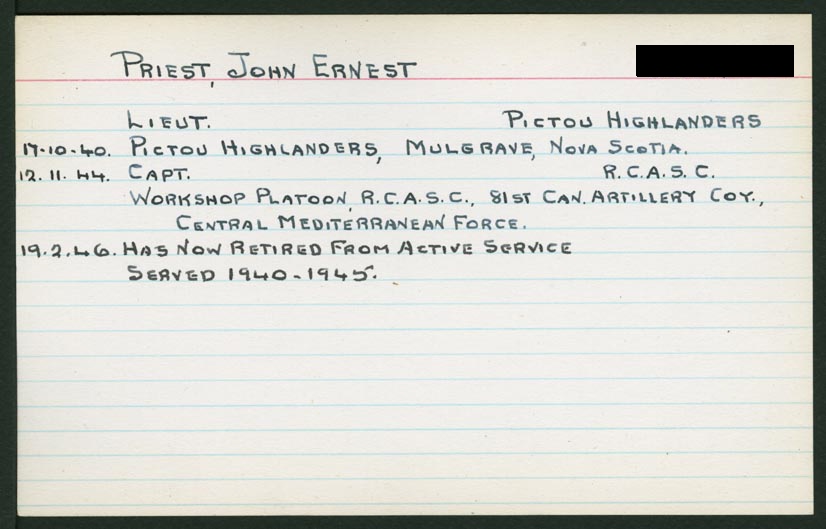 PRIEST, JOHN ERNEST
LIEUT. PICTOU HIGHLANDERS
17.10.40. PICTOU HIGHLANDERS, MULGRAVE, NOVA SCOTIA.
12.11.44. CAPT. R.C.A.S.C.
WORKSHOP PLATOON, R.C.A.S.C., 81ST CAN. ARTILLERY COY.,
CENTRAL MEDITERRANEAN FORCE.
19.2.46. HAS NOW RETIRED FROM ACTIVE SERVICE
SERVED 1940-1945.